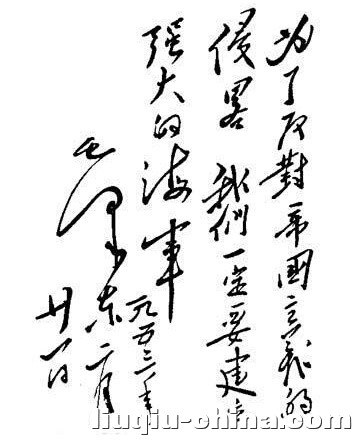 为了反對帝國主義的
侵畧 我們一定要建立
强大的海軍
一九五三年
毛澤东 二月
廿一日
liuqiu-china.com